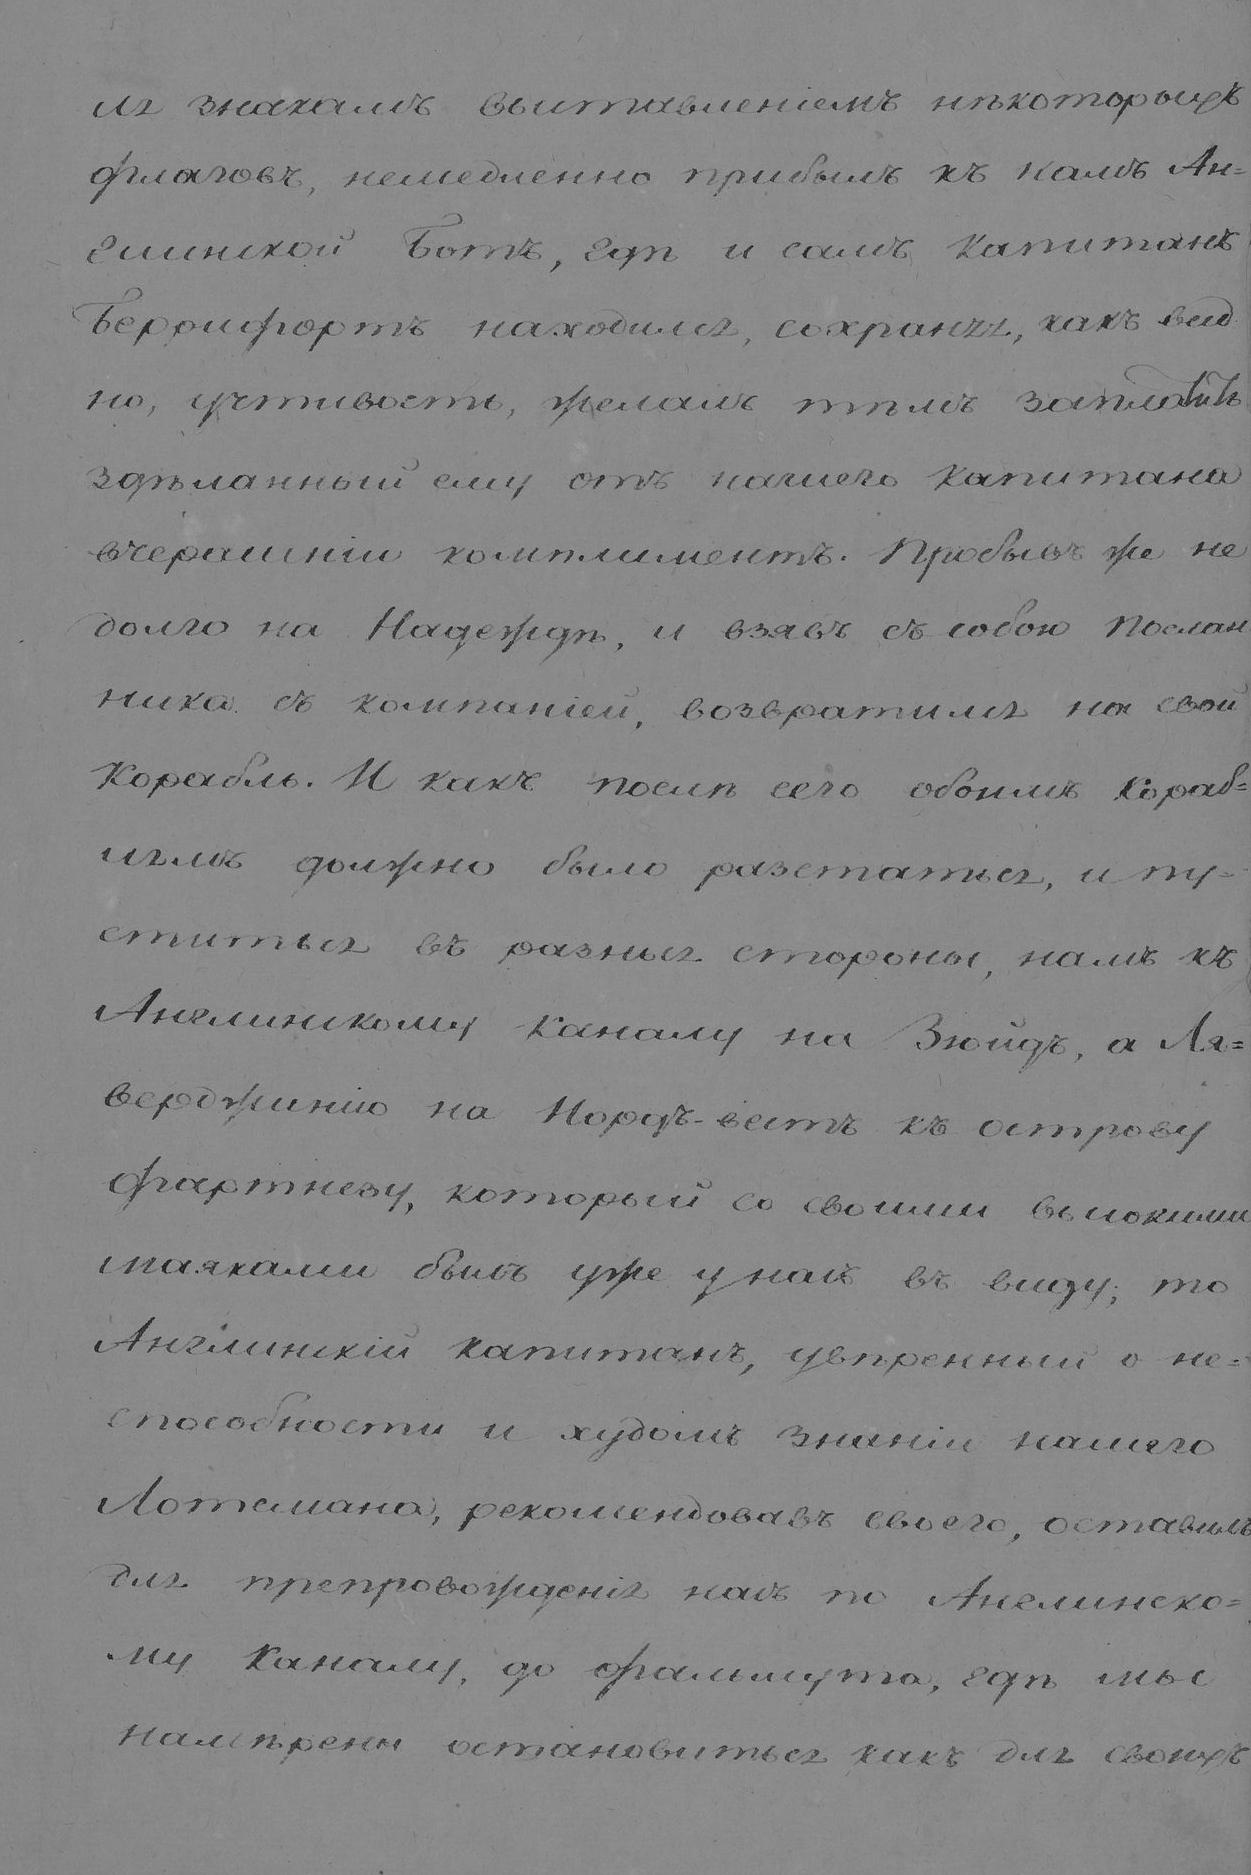 ля знакамъ выставленіемъ нѣкоторыхъ
флаговъ, немедленно прибылъ къ намъ Ан=
глинской Ботъ, гдѣ и самъ Капитанъ
Берронфортъ находился, сохраняя, какъ вид
но, учтивость, желалъ тѣмъ заплатить
здѣланный ему отъ нашего Капитана
вчерашній комплиментъ. Пробывъ же не
долго на Надеждѣ, и взявъ съ собою Послан
ника съ компаніей, возвратился на свой
Корабль. И какъ послѣ сего обоимъ Кораб=
лямъ должно было разстаться, и пу=
ститься въ разныя стороны, намъ къ
Англинскому Каналу на Зюйдъ, а Ля=
верджинію на Нордъ-вестъ къ острову
Фартнезу, который со своими высокими
маяками былъ уже у насъ въ виду; то
Англинскій Капитанъ, увѣренный о не=
способности и худомъ знаніи нашего
Лотсмана, рекомендовавъ своего, оставилъ
для препровожденія насъ по Англинско=
му Каналу, до Фальмута, гдѣ мы
намѣрены остановиться какъ для своихъ